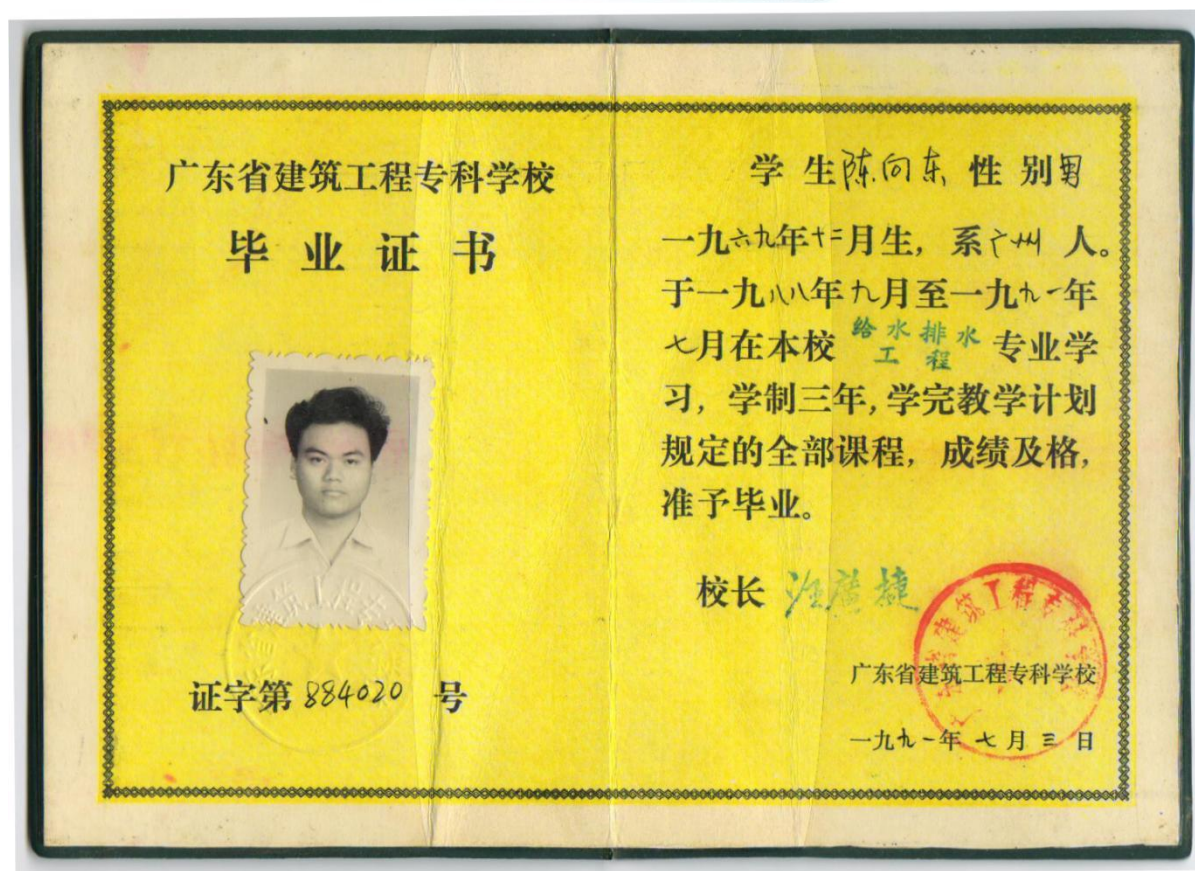 广东省建筑工程专科学校
毕业证书
证字第 884020 号
学生陈向东 性别男
一九六九年十二月生，系广州人。
于一九八八年九月至一九九一年
七月在本校 给水排水工程 专业学
习，学制三年，学完教学计划
规定的全部课程，成绩及格，
准予毕业。
校长 汪廣捷
广东省建筑工程专科学校
一九九一年七月三日